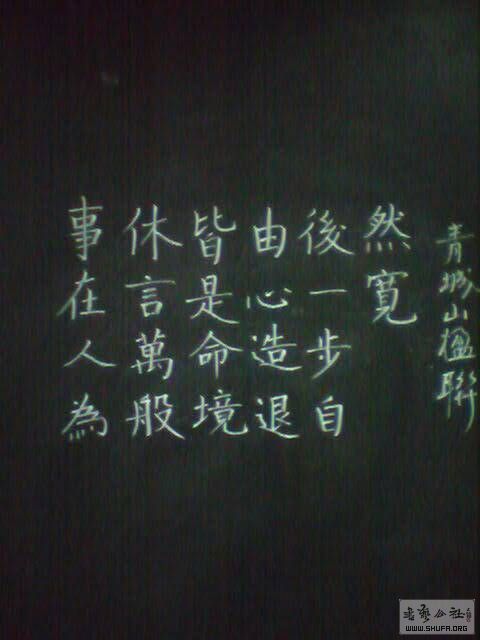 事在人為
休言萬般
皆是命境
由心造退
後一步自
然寬
青城山楹聯
書藝公社
WWW.SHUFA.ORG